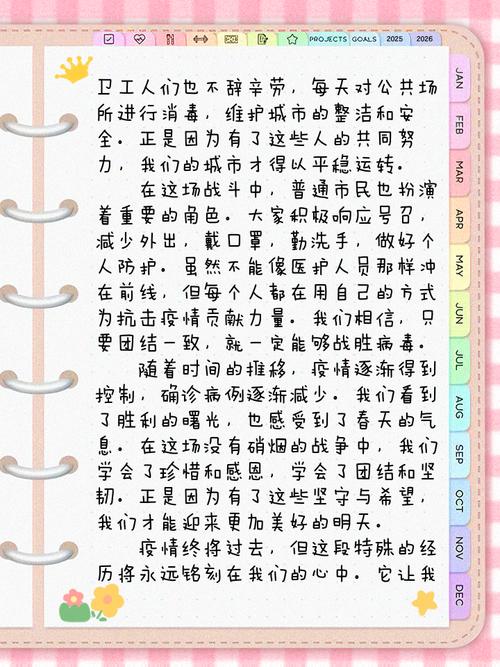 PROJECTS GOALS 2025 2026
卫工人们也不辞辛劳，每天对公共场
所进行消毒，维护城市的整洁和安
全。正是因为有了这些人的共同努
力，我们的城市才得以平稳运转。
在这场战斗中，普通市民也扮演
着重要的角色。大家积极响应号召，
减少外出，戴口罩，勤洗手，做好个
人防护。虽然不能像医护人员那样冲
在前线，但每个人都在用自己的方式
为抗击疫情贡献力量。我们相信，只
要团结一致，就一定能够战胜病毒。
随着时间的推移，疫情逐渐得到
控制，确诊病例逐渐减少。我们看到
了胜利的曙光，也感受到了春天的气
息。在这场没有硝烟的战争中，我们
学会了珍惜和感恩，学会了团结和坚
韧。正是因为有了这些坚守与希望，
我们才能迎来更加美好的明天。
疫情终将过去，但这段特殊的经
历将永远铭刻在我们的心中。它让我
JAN
FEB
MAR
APR
MAY
JUN
JUL
AUG
SEP
OCT
NOV
DEC